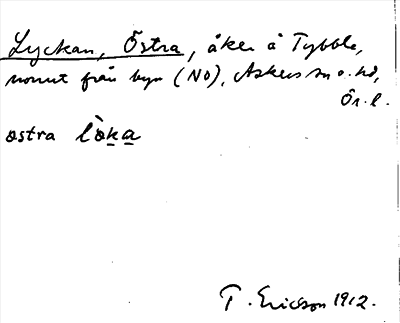 Lyckan, Östra, åker å Tybble,
norrut från byn (NO), Askers sn o. hd,
Ör. l.
østra lò̀ka
T. Ericsson 1912.